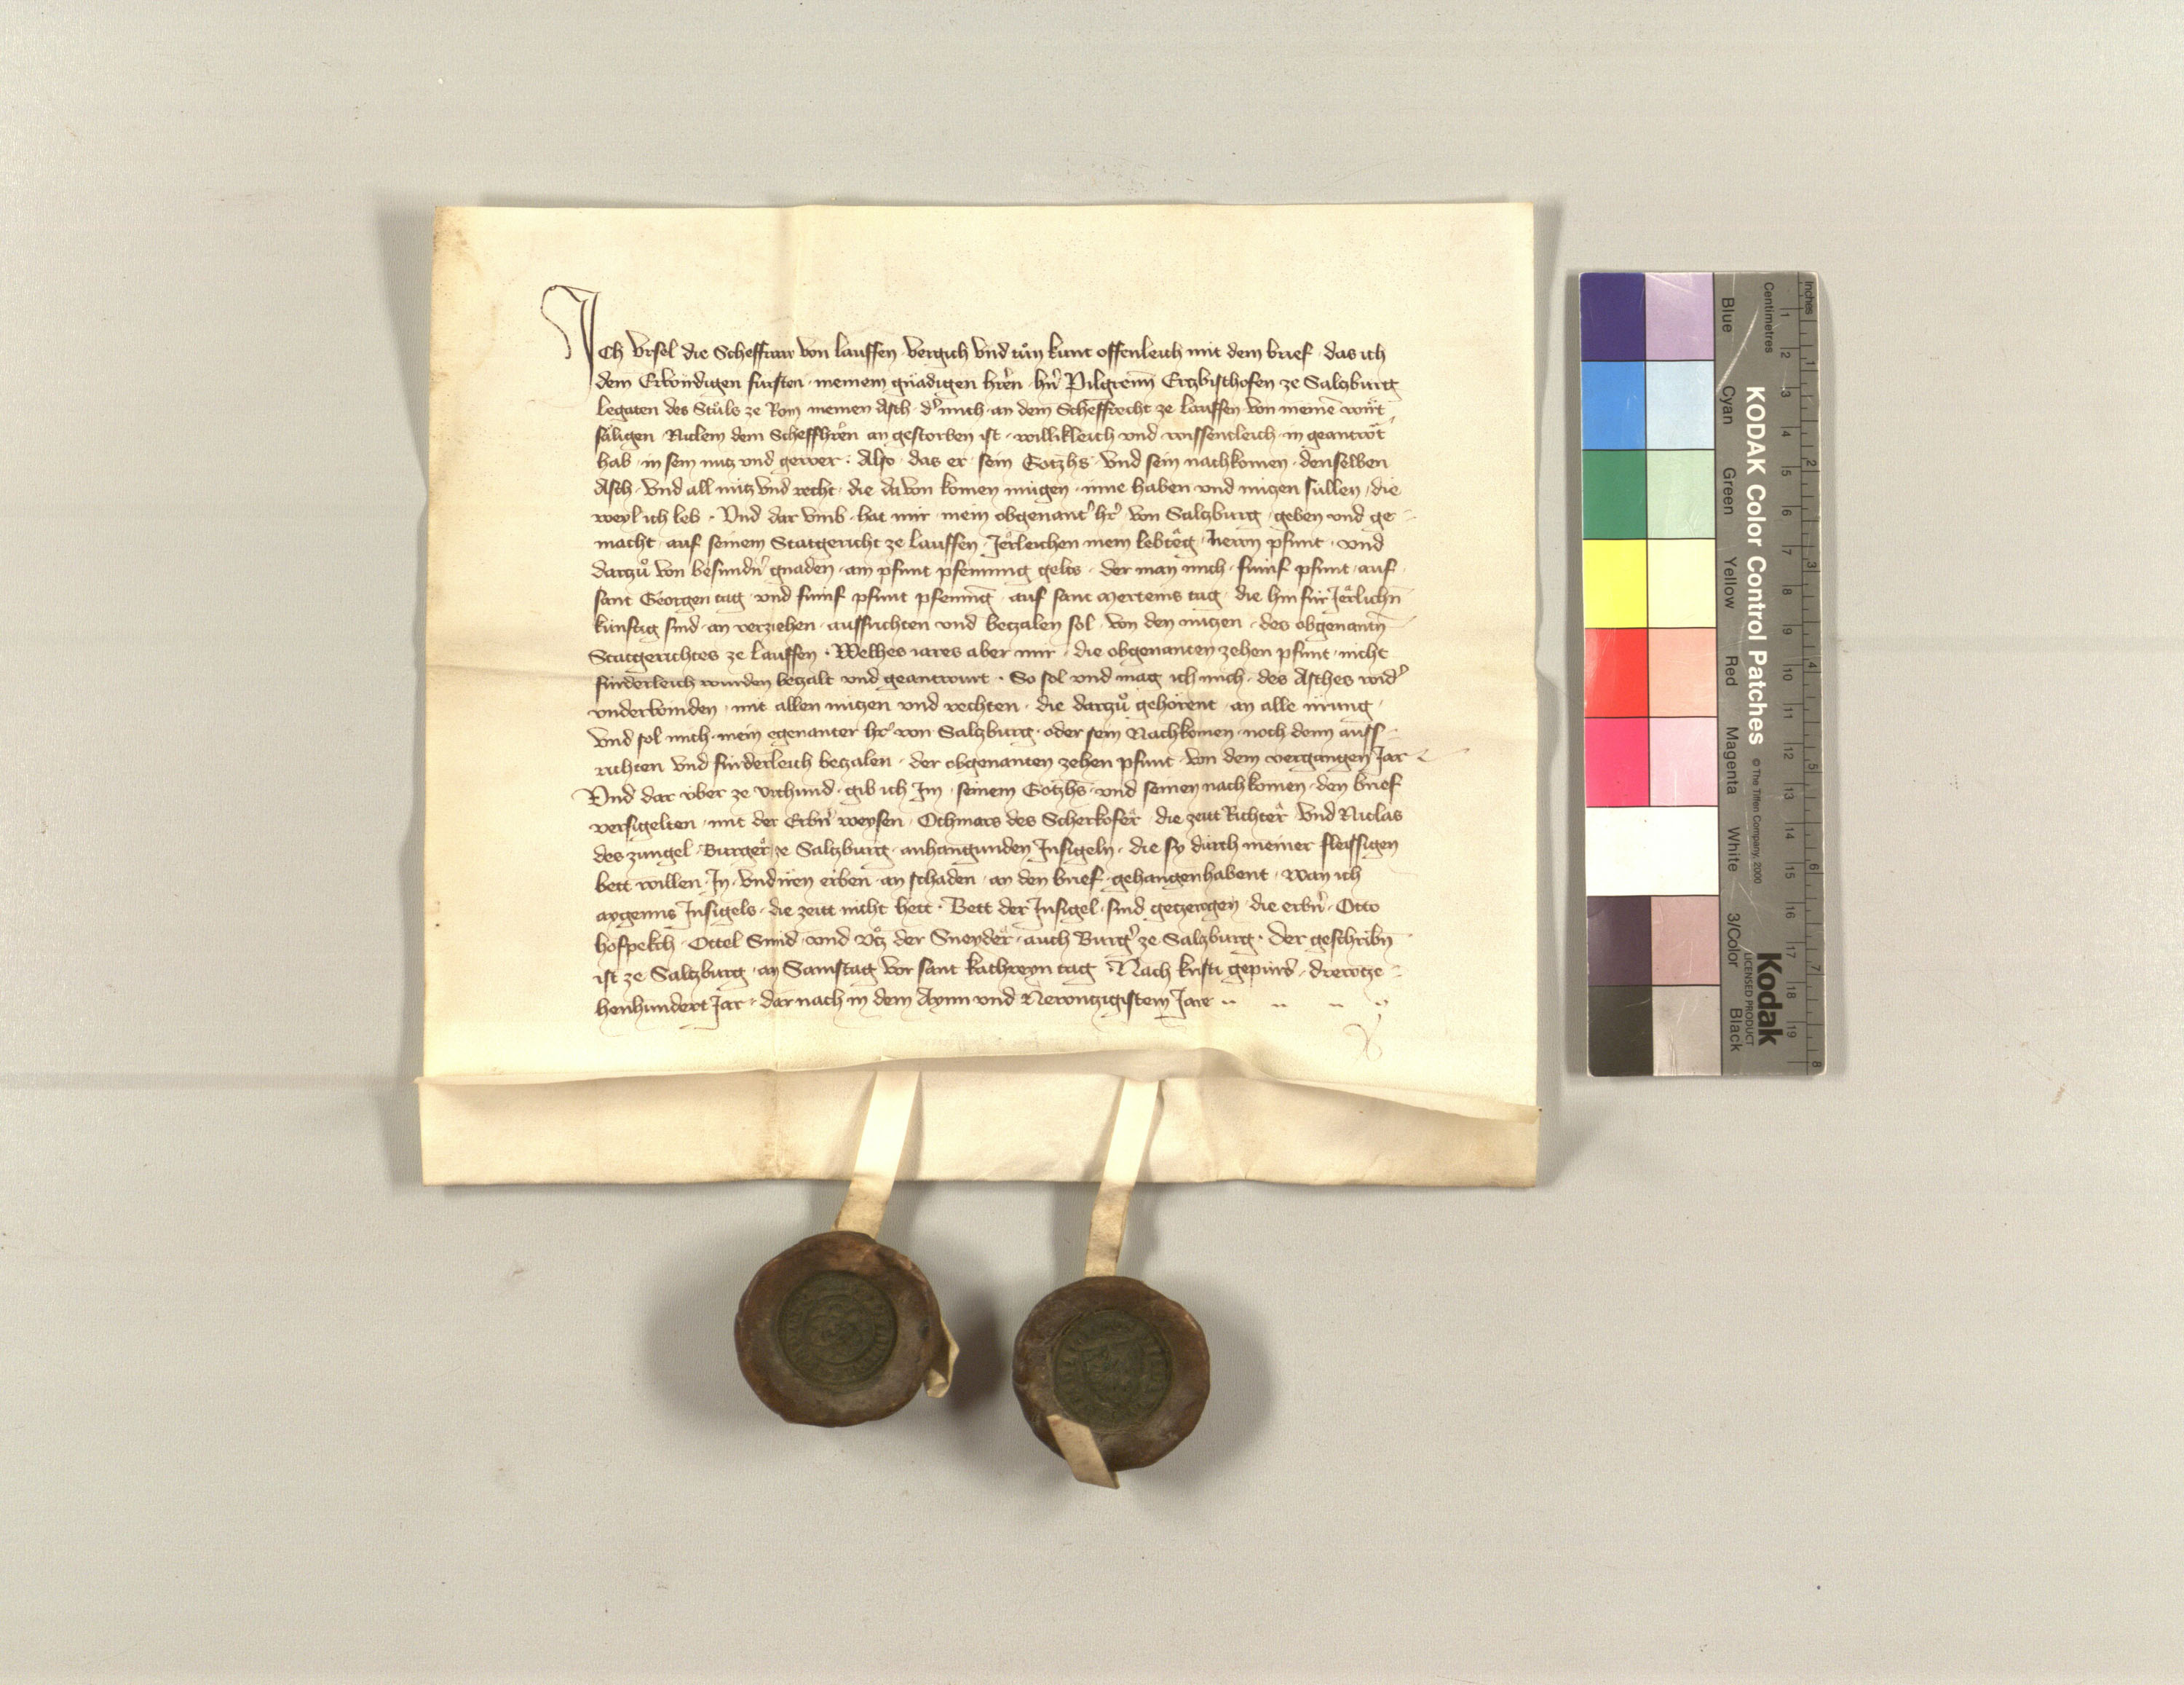 Ich Vrsel die Scheffraw von Lauffen vergich vnd tůn kunt offenleich mit dem brief das ich
dem Erwirdigen fürsten meinem gnädigen hr̄en hn̄ Pilgreim Ertzbisthofen ze Saltzburg
Legaten des Stůls ze Rom meinen Asch d' mich an dem Scheffrecht ze Lauffen von meinē wirt
säligen Niclein dem Scheffhr̄en an gestorben ist willikleich vnd wissentleich in geantwrt̄
hab in sein nutz vnd gewer · Also das er sein Gotzhs vnd sein nachkomen denselben
Asch vnd all nütz vnd recht die dauon komen mügen inne haben vnd nützen süllen die
weyl ich leb · Vnd dar vmb hat mir mein obgenant' hr' von Saltzburg geben vnd ge-
macht auf seinem Statgericht ze Lauffen Jerleichen mein lebtēg Newn pfunt vnd
dartzů von besundn' gnaden ain pfunt pfenning gelts der man mich fünf pfunt auf
sant Georgen tag vnd fünf pfunt pfenning auf sant Merteins tag die hin für Jerlichn̄
künftig sind an verziehen ausrichten vnd betzalen sol von den nützen des obgenantn̄
Statgerichtes ze Lauffen · Welhes iares aber mir die obgenanten zehen pfunt nicht
fürderleich wurden betzalt vnd geantwurt · So sol vnd mag ich mich des Asches wid'
vnderwinden mit allen nützen vnd rechten die dartzů gehörent an alle irrung
vnd sol mich mein egenanter hr' von Saltzburg oder sein Nachkomen noch denn auss-
richten vnd fürderleich betzalen der obgenanten zehen pfunt von dem vergangen Jar
Vnd dar über ze vrchund gib ich Im seinem Gotzhs vnd seinen nachkomen den brief
versigelten mit der Erbn' weysen Othmars des Scherkofer die zeit Richter vnd Niclas
des Zungel Burger ze Saltzburg anhangunden Insigeln die sy durch meiner fleissigen
bett willen In vnd iren erben an schaden an den brief gehangen habent wan ich
aygenns Insigels die zeitt nicht hett · Bett der Insigel sind getzewgen die erbn' Otto
Hofpekch Ottel Smid vnd Vtz der Sneyder auch Burg' ze Saltzburg · Der geschribn̄
ist ze Saltzburg an Samstag vor sant Kathreyn tag Nach kristi gepürd drewtze-
henhundert Jar darnach in dem Aynn vnd Newntzigistem Jare
KODAK Color Control Patches
© The Tiffen Company, 2000
Kodak
LICENSED PRODUCT
Inches
Centimetres
Blue
Cyan
Green
Yellow
Red
Magenta
White
3/Color
Black
1 2 3 4 5 6 7 8
1 2 3 4 5 6 7 8 9 10 11 12 13 14 15 16 17 18 19